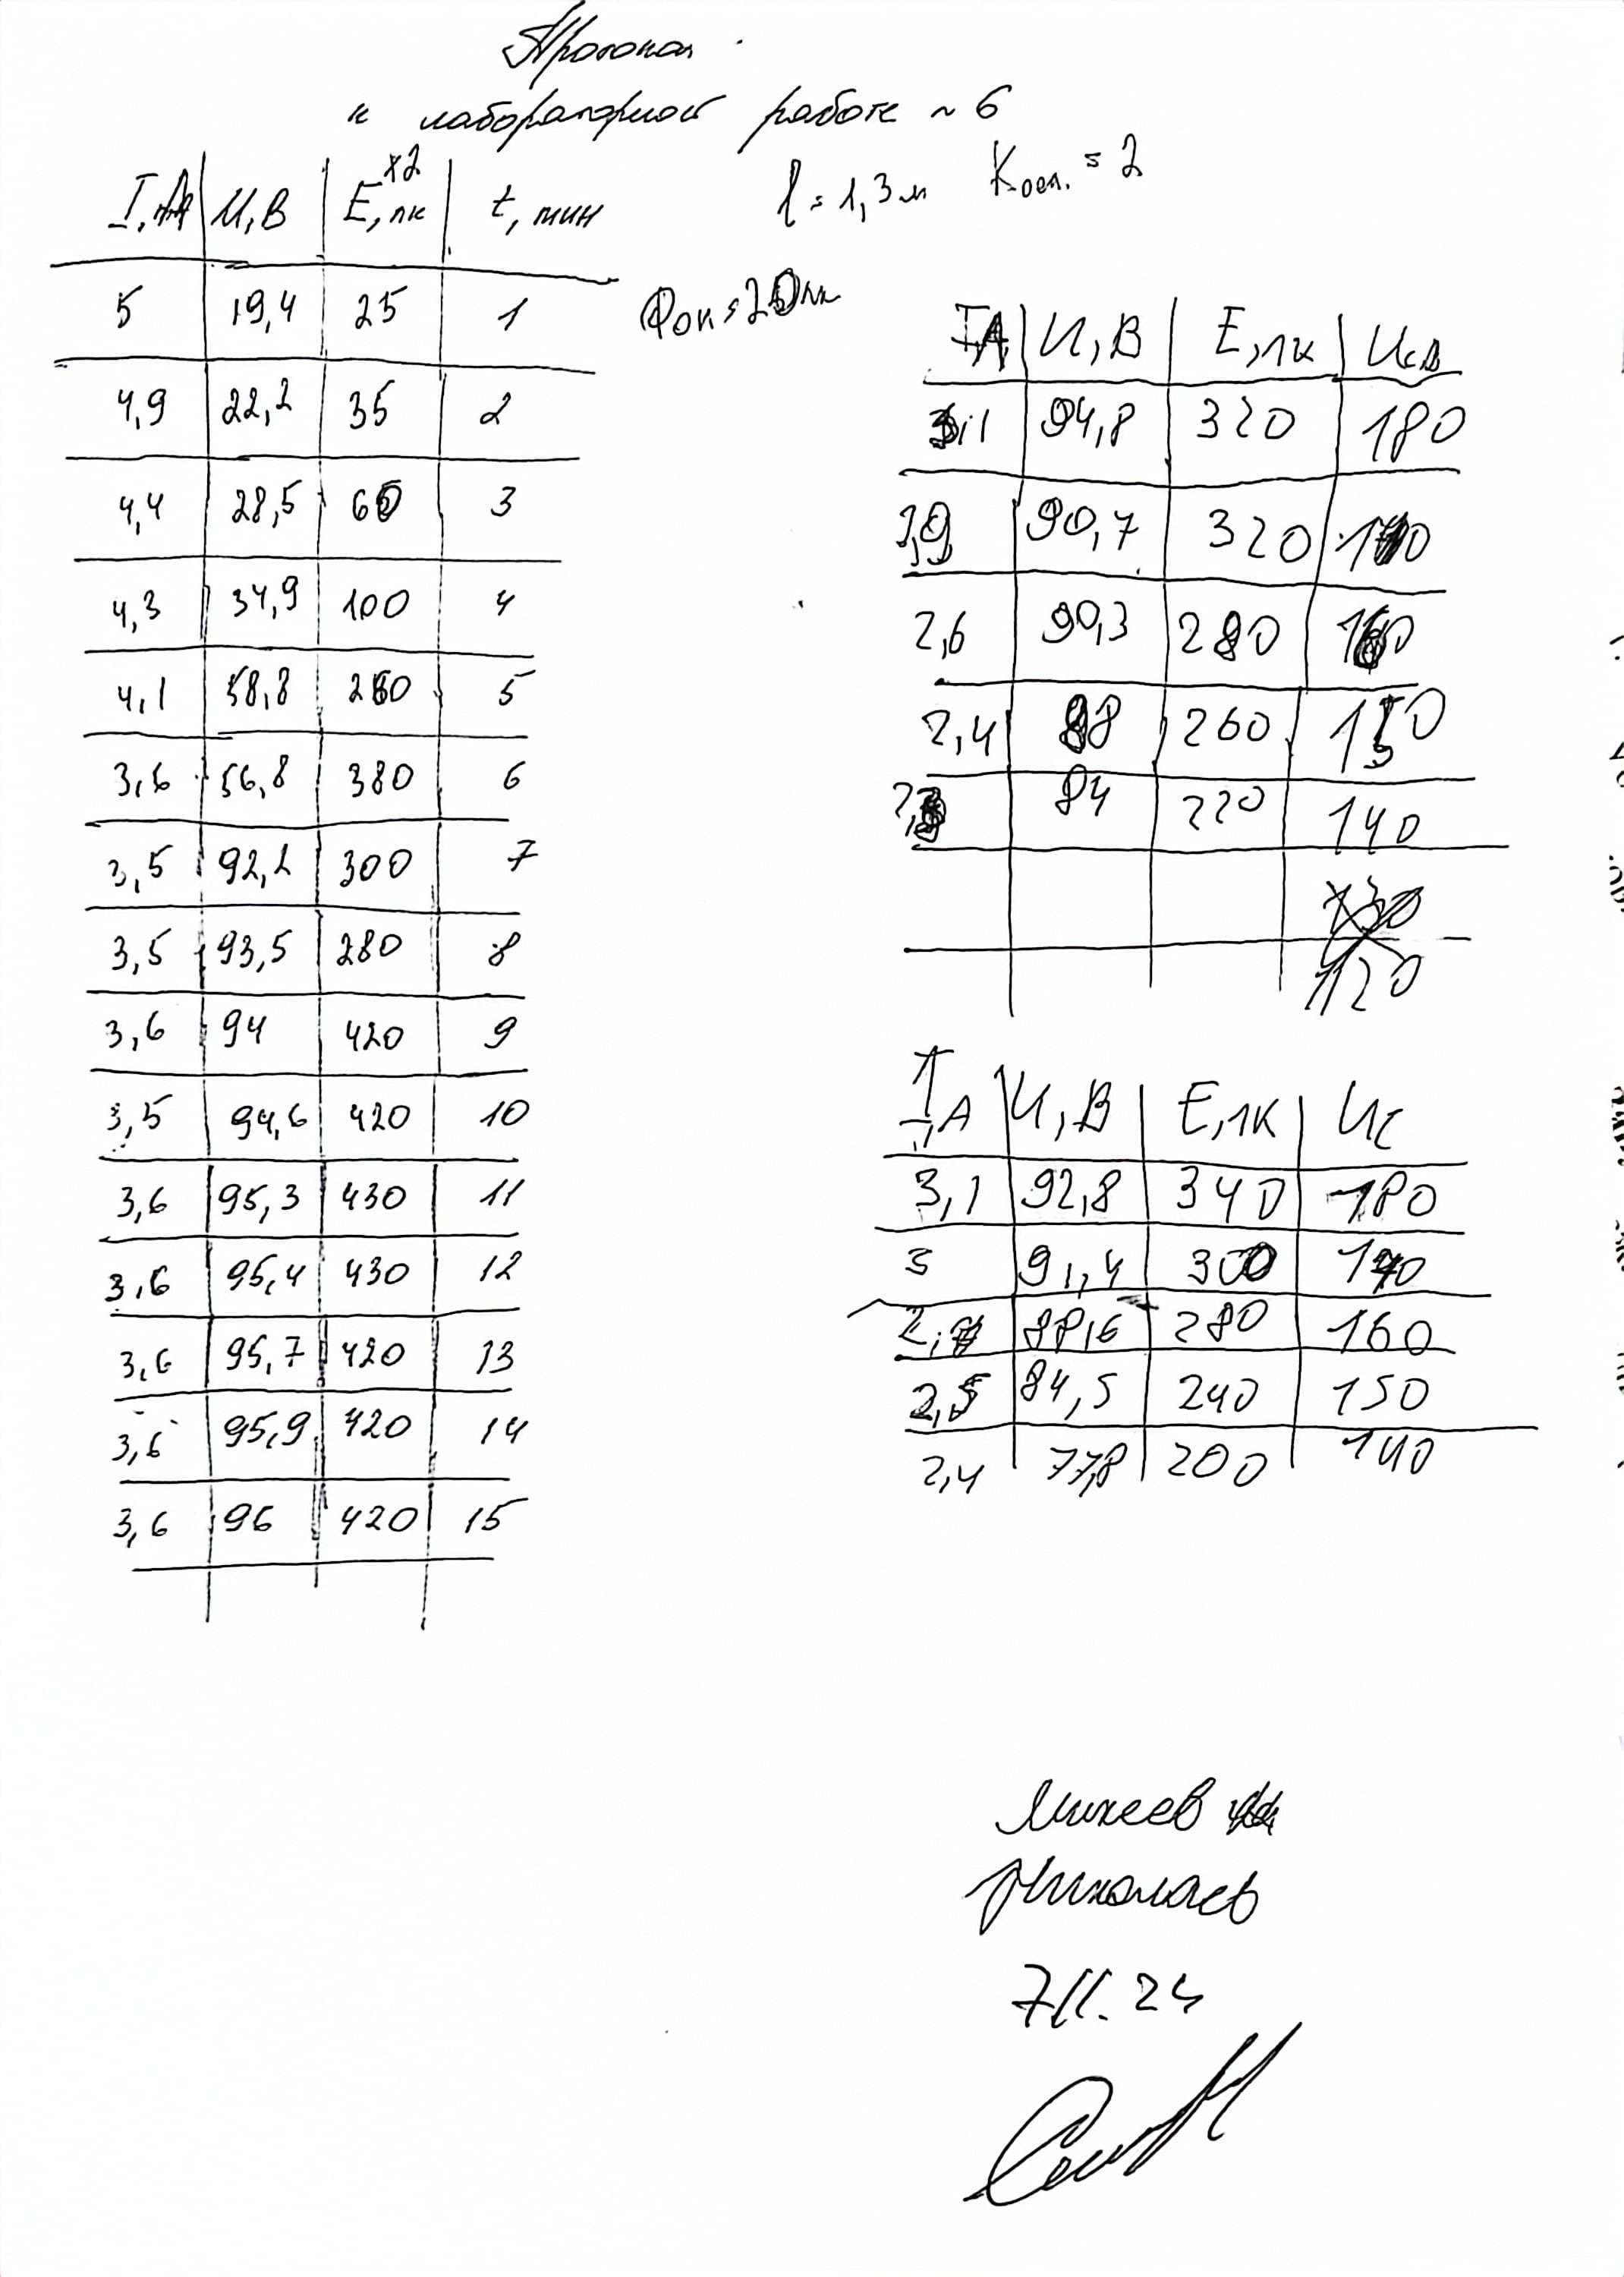 Протокол
к лабораторной работе ~ 6
l = 1,3 м Kосл. = 2
Фон = 20 лк
I, A U, В E, лк x2 t, мин
5 19,4 25 1
4,9 22,2 35 2
4,4 28,5 60 3
4,3 34,9 100 4
4,1 58,8 260 5
3,6 56,8 380 6
3,5 92,2 300 7
3,5 93,5 280 8
3,6 94 420 9
3,5 94,6 420 10
3,6 95,3 430 11
3,6 95,4 430 12
3,6 95,7 420 13
3,6 95,9 420 14
3,6 96 420 15
I, A U, В E, лк Uсв
3,1 94,8 320 180
90,7 320 170
2,6 90,3 280 160
2,4 88 260 150
84 220 140
120
I, A U, В E, лк Uс
3,1 92,8 340 180
3 91,4 300 170
2,7 88,6 280 160
2,5 84,5 240 150
2,4 77,8 200 140
Михеев
Николаев
7.11.24